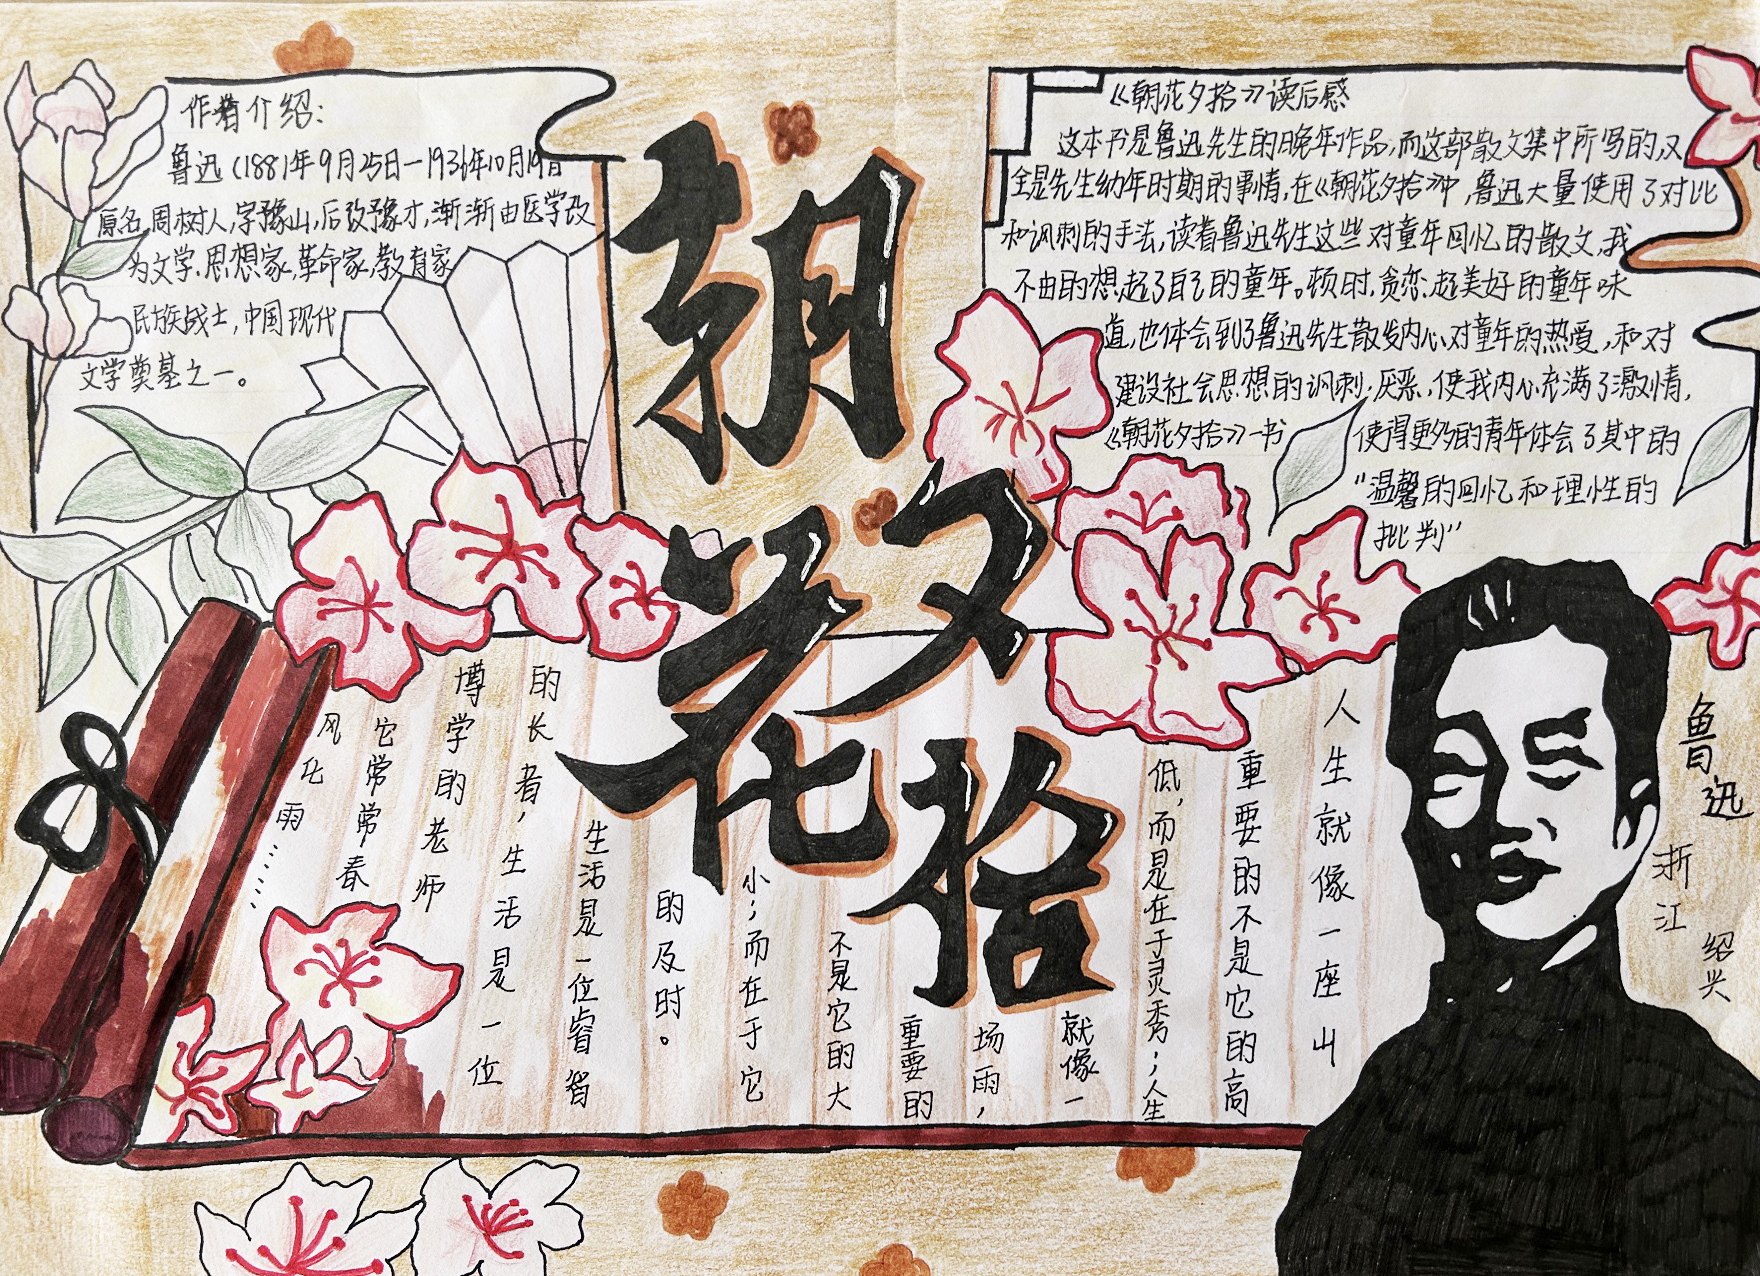 朝花夕拾
作者介绍：
鲁迅（1881年9月25日—1936年10月19日
原名，周树人，字豫山，后改豫才，渐渐由医学改
为文学.思想家，革命家，教育家
民族战士，中国现代
文学奠基之一。
《朝花夕拾》读后感
这本书是鲁迅先生的晚年作品，而这部散文集中所写的，又
全是先生幼年时期的事情，在《朝花夕拾》中，鲁迅大量使用了对比
和讽刺的手法，读着鲁迅先生这些对童年回忆的散文，我
不由的想起了自己的童年。顿时，贪恋起美好的童年味
道，也体会到了鲁迅先生散发内心对童年的热爱，和对
建设社会思想的讽刺.厌恶，使我内心充满了激情，
《朝花夕拾》一书 使得更多的青年体会了其中的
“温馨的回忆和理性的
批判”
人生就像一座山
重要的不是它的高
低，而是在于灵秀；人生
就像一
场雨，
重要的
不是它的大
小；而在于它
的及时。
生活是一位睿智
的长者，生活是一位
博学的老师
它常常春
风化雨……
鲁迅
浙江
绍兴